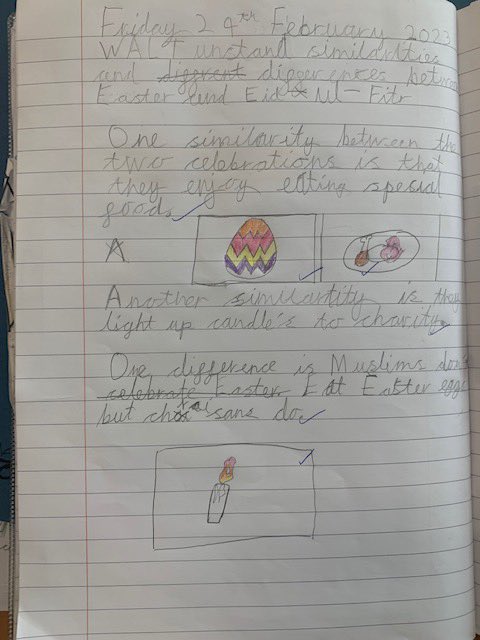 Friday 24th February 2023
WALT unstand similarities
and diggrent diggerences betwe
Easter and Eid Ul-Fitr
One similarity between the
two celebrations is that
they enjoy eating special
goods
A
Another similartity is they
light up candle's to charity
One difference is Muslims don
celebrate Easter Eat Easter eggs
but sans do